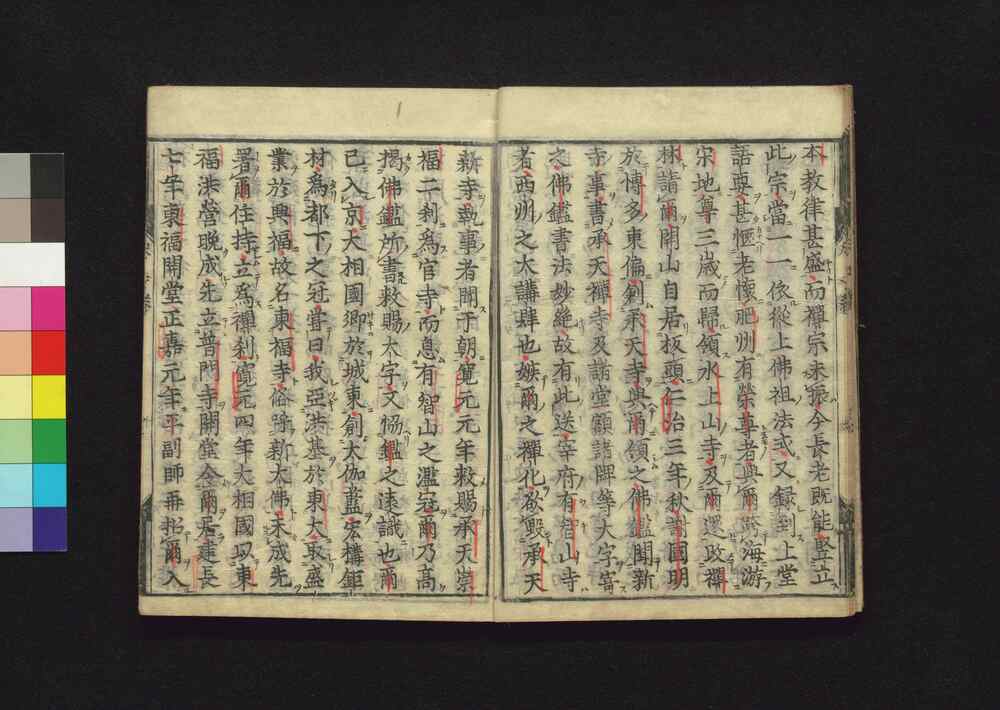 本教律甚盛而禪宗未振今長老既能竪立
此宗當一一依從上佛祖法式又録到上堂
語要甚愜老懷肥州有榮尊者與爾發海游
宋地尊三歳而歸領水上山寺及爾還政禪
林請爾開山自居板頭仁治三年秋謝國明
於博多東偏創承天寺與爾領之佛鑑聞新
寺事書承天禪寺及諸堂額諸牌等大字寄
之佛鑑書法妙絶故有此送宰府有智山寺
者西州之大講肆也嫉爾之禪化欲毀承天
新寺執事者聞于朝寛元元年敕賜承天崇
福二刹爲官寺而息有智山之濫冠爾乃高
掲佛鑑所書敕賜大字文協鑑之遠識也爾
已入京大相國卿於城東創大伽藍宏構鉅
材爲都下之冠嘗曰我亞洪基於東大取盛
業於興福故名東福寺俗號新大佛未成先
署爾住持立爲禪刹寛元四年大相國以東
福洪營晩成先立普門寺開堂令爾居建長
七年東福開堂正嘉元年平副師再招爾入